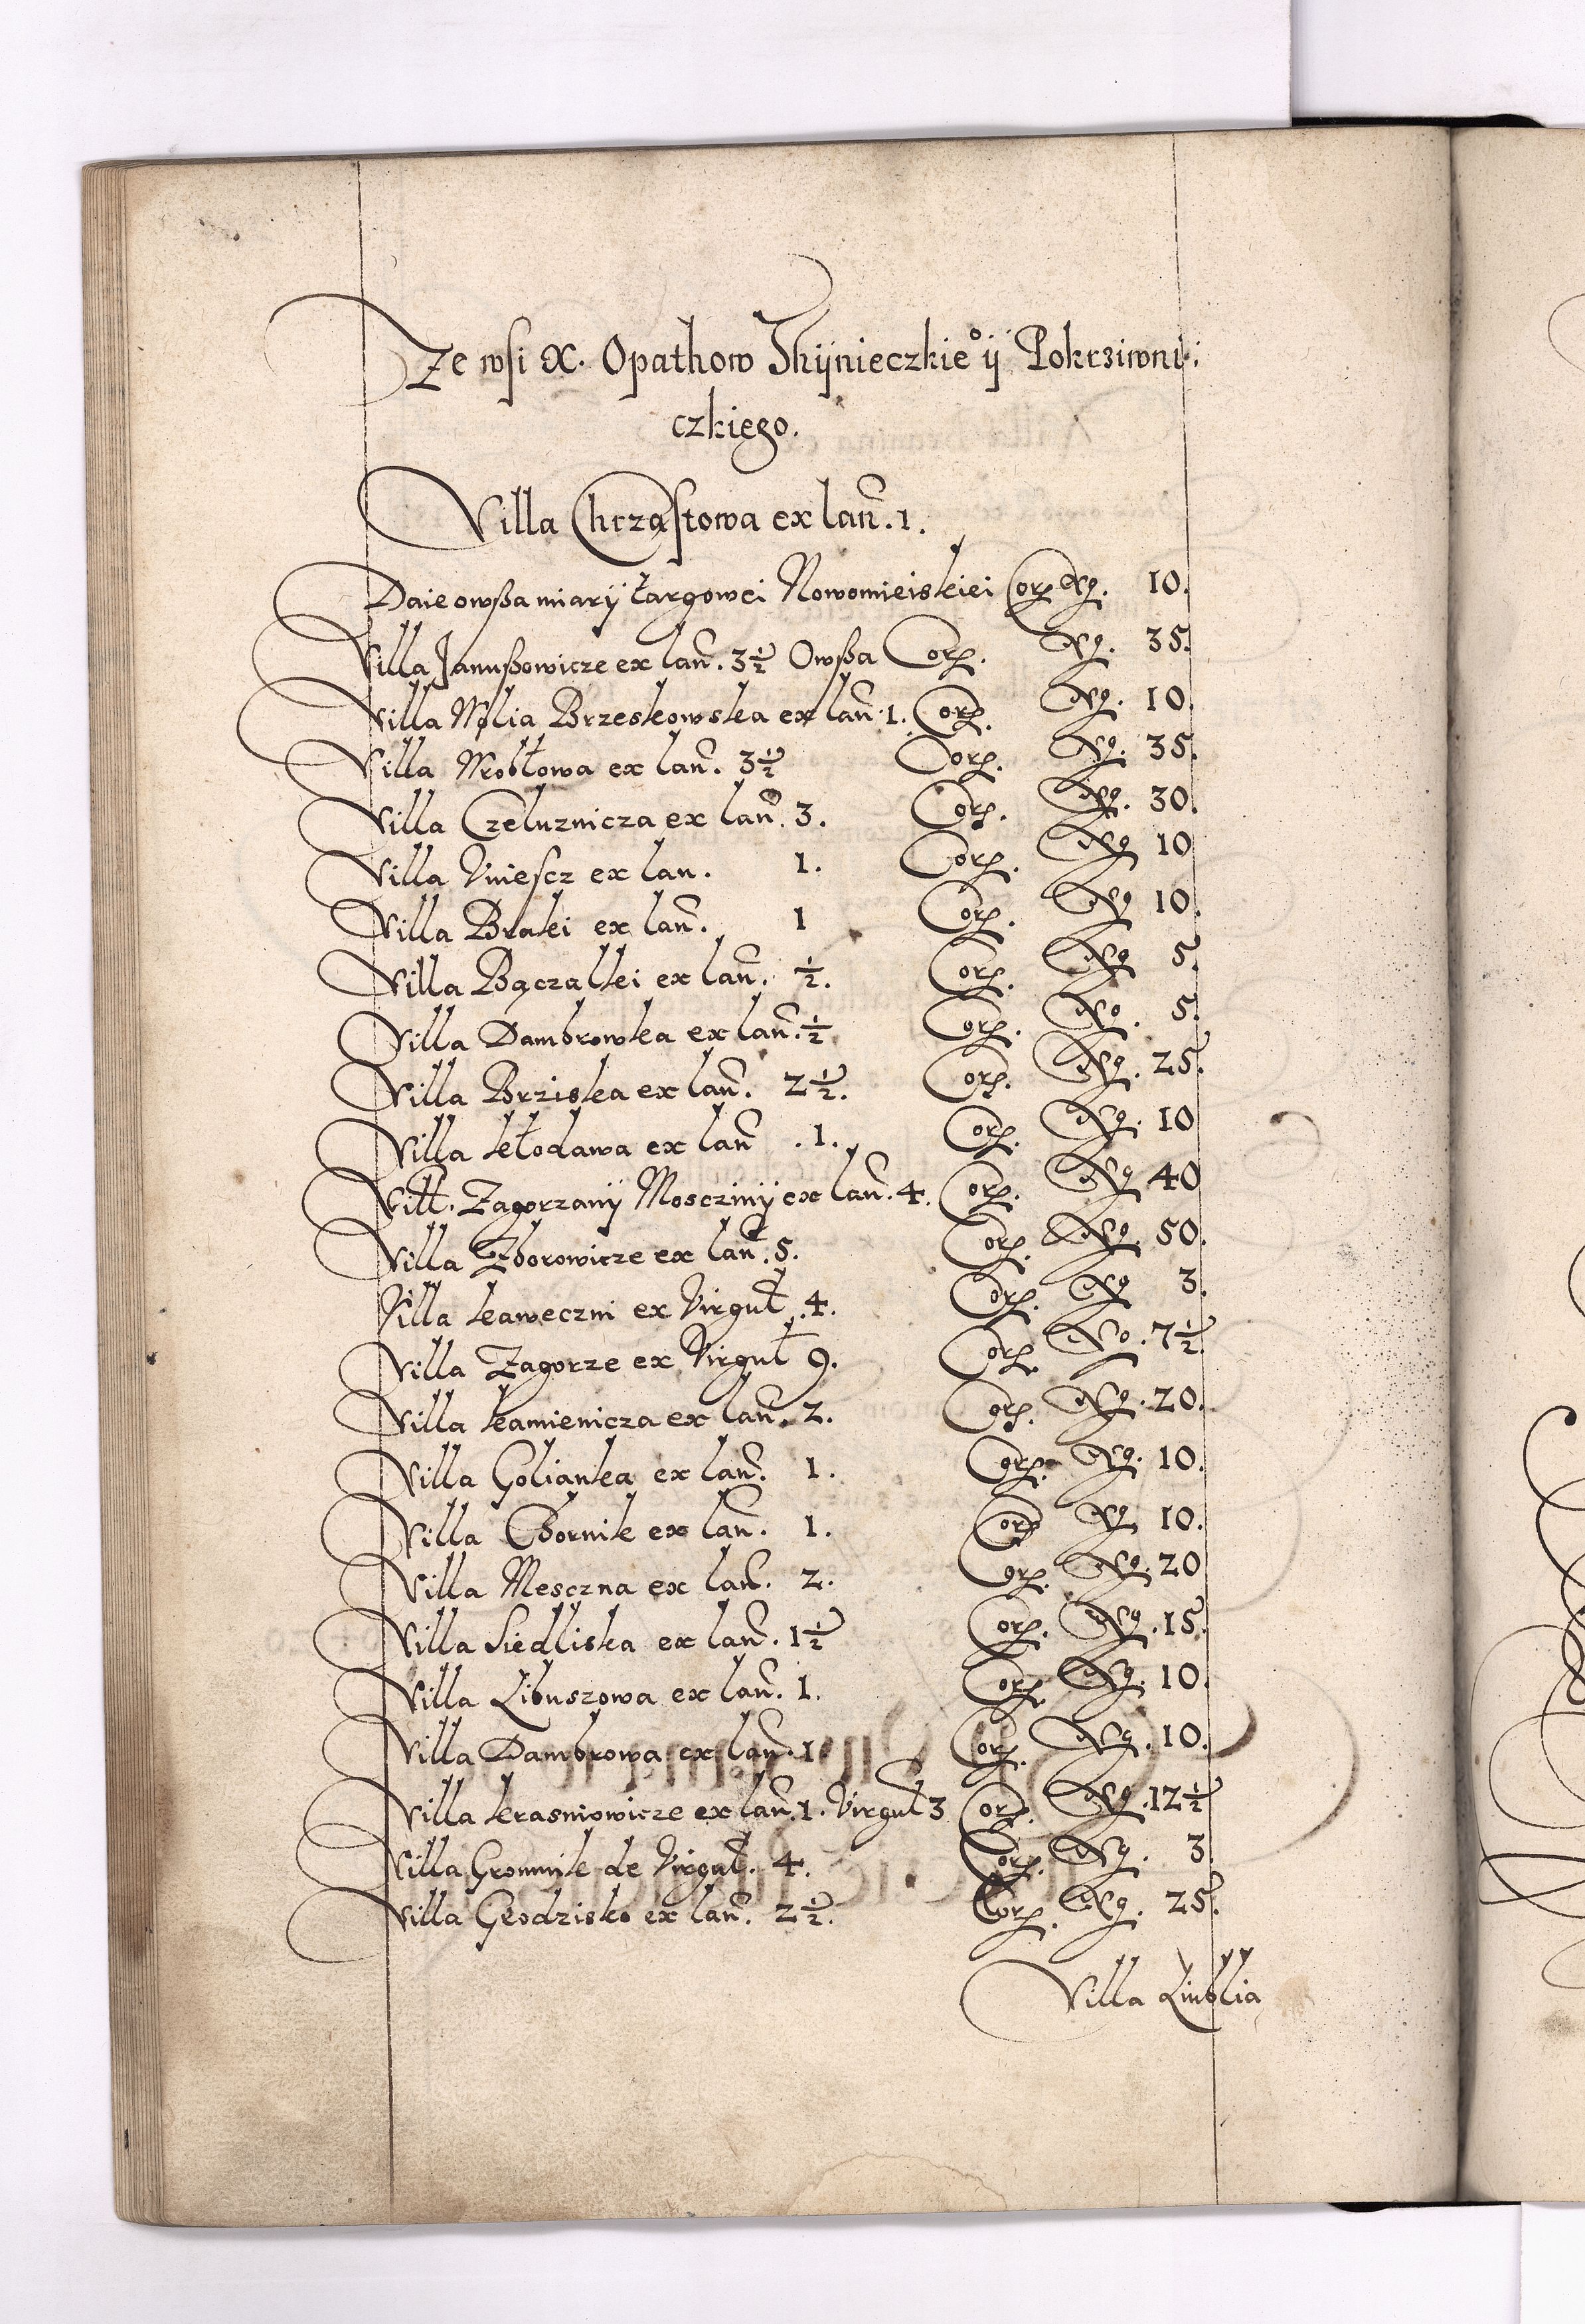 Ze wsi X. Opathow Thÿnieczkieº ÿ Pokrziwni:
czkiego.
Villa Chrząstowa ex lan̄. 1.
Daie owßa miarÿ targowei Nowomieiskiei Corz. No. 10.
Villa Janußowicze ex lan̄. 3½ Owßa Corz. No. 35.
Villa Wolia Brzeskowska ex lan̄. 1. Corz. No. 10.
Villa Wrobłowa ex lan̄. 3½ Corz. No. 35.
Villa Czeluznicza ex lan̄. 3. Corz. No. 30.
Villa Uniescz ex lan. 1. Corz. No 10
Villa Braki ex lan̄. 1 Corz. No 10.
Villa Bączalki ex lan̄. ½. Corz. No 5.
Villa Dambrowka ex lan̄. ½ Corz. No. 5.
Villa Brziska ex lan̄. 2½. Corz. No. 25.
Villa kłodawa ex lan̄ .1. Corz. No. 10
Vilł. Zagorzanÿ Mosczinÿ ex lan̄. 4. Corz. No 40
Villa Zborowicze ex lan̄. 5. Corz. No. 50.
Villa kaweczni ex Virguł. 4. Corz. No 3.
Villa Zagorze ex Virguł 9. Corz. No. 7½.
Villa kamienicza ex lan̄. 2. Corz. No. 20.
Villa Golianka ex lan̄. 1. Corz. No. 10.
Villa Chornik ex lan̄. 1. Corz No. 10.
Villa Mesczna ex lan̄. 2. Corz. No. 20
Villa Siedliska ex lan̄. 1½ Corz. No. 15.
Villa Libuszowa ex lan̄. 1. Corz. No. 10.
Villa Dambrowa ex lan̄. 1 Corz. No. 10.
Villa krasniowicze ex lan̄. 1. Virguł 3 Corz. No. 12½
Villa Gromnik de Virguł. 4. Corz. No. 3.
Villa Grodzisko ex lan̄. 2½. Corz. No. 25.
Villa Liublia